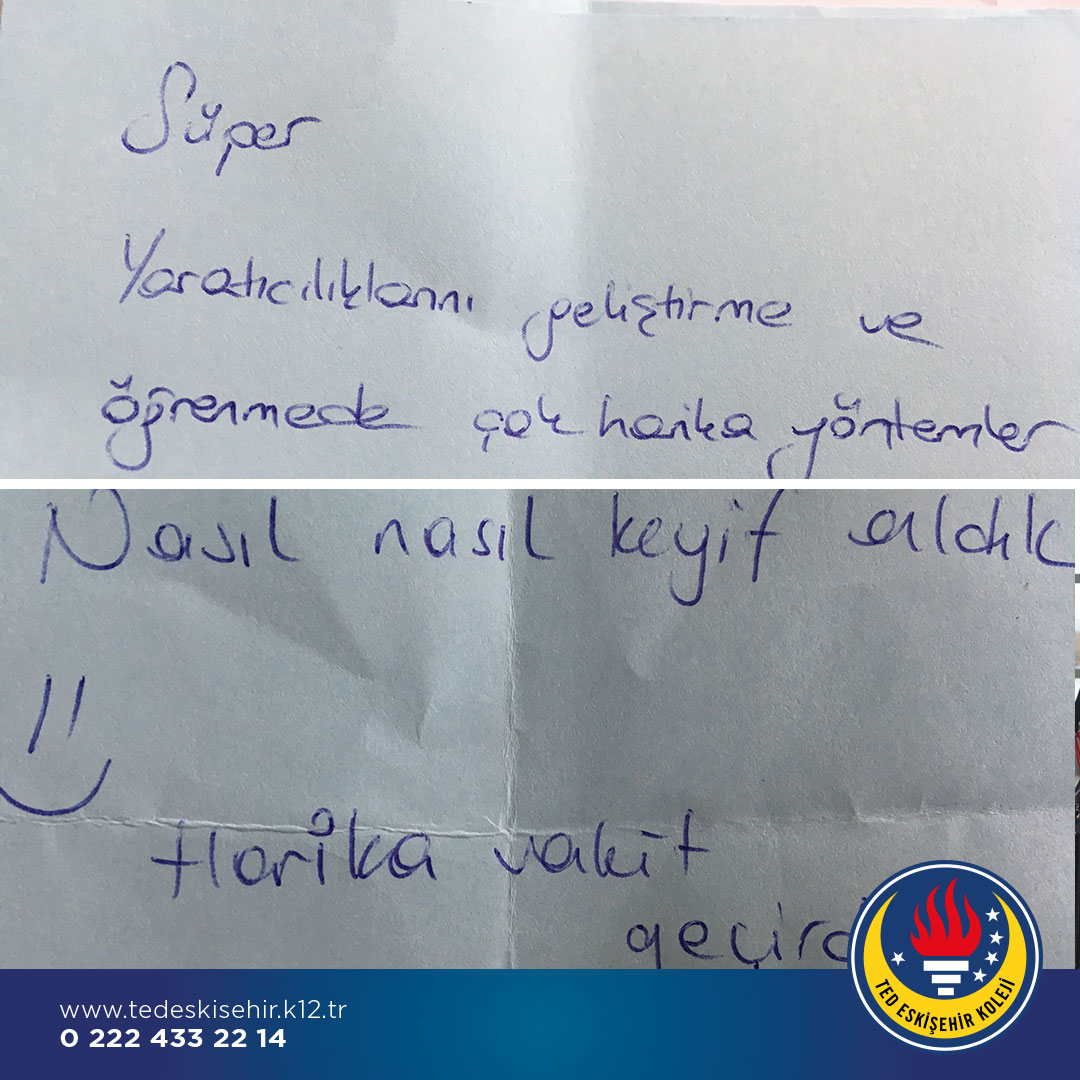 Süper
Yaratıcılıklarını geliştirme ve
öğrenmede çok harika yöntemler
Nasıl nasıl keyif aldık
Harika vakit
www.tedeskisehir.k12.tr
0 222 433 22 14
TED ESKİŞEHİR KOLEJİ